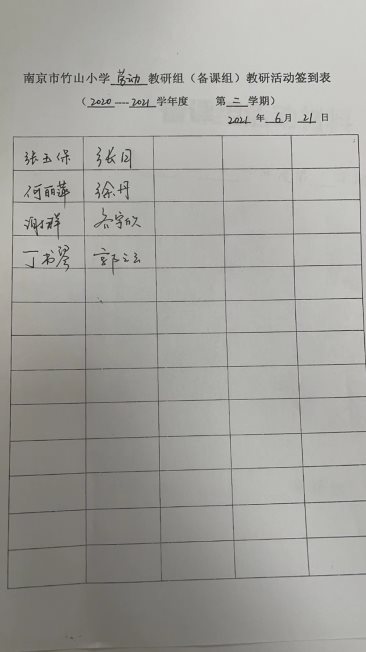 南京市竹山小学 劳动 教研组（备课组）教研活动签到表
（ 2020----2021 学年度 第 二 学期）
2021 年 6 月 21 日
张玉保
何丽萍 徐丹
谢群
丁书琴